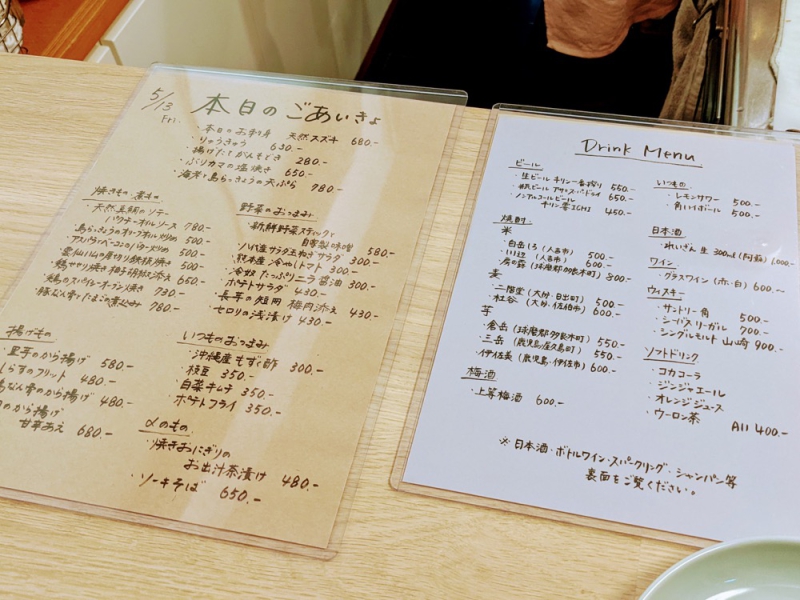 5/13
Fri.
本日のごあいきょ
・本日のお刺身 天然スズキ 680.-
・りゅうきゅう 630.-
・揚げたてがんもどき 280.-
・ぶりカマの塩焼き 650.-
・海岸と島らっきょうの天ぷら 780.-
焼きもの・煮もの
・天然真鯛のソテー
バウナーオイルソース 780.-
・島らっきょうのオリーブオイル炒め 500.-
・アスパラとベーコンのバター炒め 500.-
・雲仙ハムの厚切り鉄板焼き 500.-
・鶏もやり焼き 柚子胡椒添え 650.-
・鶏のスパイシーオーブン焼き 730.-
・豚なん骨とたまごの煮込み 780.-
野菜のおつまみ
・新鮮野菜スティック
自家製味噌 580.-
・ハム玉サラダ玉ねぎサラダ 300.-
・熊本産冷やしトマト 300.-
・冷奴 たっぷりニラ醤油 300.-
・ポテトサラダ 430.-
・長芋の短冊 梅肉添え 430.-
・セロリの浅漬け 430.-
揚げもの
里芋のから揚げ 580.-
しらすのフリット 480.-
なん骨のから揚げ 480.-
のから揚げ
甘辛あえ 680.-
いつものおつまみ
・沖縄産もずく酢 300.-
・枝豆 350.-
・白菜キムチ 350.-
・ポテトフライ 350.-
〆のもの
・焼きおにぎりの
お出汁茶漬け 480.-
・ソーキそば 650.-
Drink Menu
ビール
・生ビール キリン一番搾り 550.-
・瓶ビール アサヒスーパードライ 650.-
・ノンアルコールビール
キリン零ICHI 450.-
焼酎
米
・白岳しろ (人吉市) 500.-
・川辺 (人吉市) 600.-
・房の露 (球磨郡多良木町) 800.-
麦
・二階堂 (大分・日出町) 500.-
・杜谷 (大分・佐伯市) 600.-
芋
・蔓岳 (球磨郡多良木町) 550.-
・三岳 (鹿児島・屋久島町) 550.-
・伊佐美 (鹿児島・伊佐市) 600.-
梅酒
・上等梅酒 600.-
いつもの
・レモンサワー 500.-
・角ハイボール 500.-
日本酒
・れいざん 生 300ml (阿蘇) 1,000.-
ワイン
・グラスワイン (赤・白) 600.-
ウィスキー
・サントリー角 500.-
・シーバスリーガル 700.-
・シングルモルト 山崎 900.-
ソフトドリンク
・コカコーラ
・ジンジャエール
・オレンジジュース
・ウーロン茶 All 400.-
※日本酒・ボトルワイン・スパークリング・シャンパン等
裏面をご覧ください。